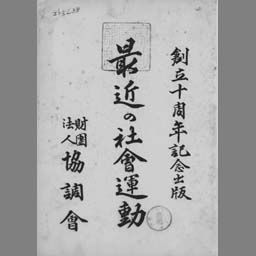 創立十周年記念出版
最近の社會運動
財團
法人
協調會